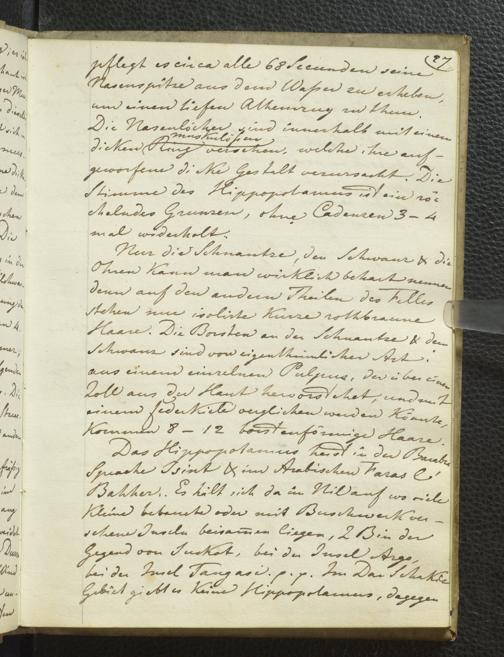 (27
pflegt es circa alle 68 Secunden seine
Nasenspitze aus dem Wasser zu erheben,
um einen tiefen Athemzug zu thun.
Die Nasenlöcher sind innerhalb mit einem
muskulösen
dicken Ring versehen, welche ihre auf-
geworfene dicke Gestalt verursacht. Die
Stimme des Hippopotamus ist ein rö-
chelndes Grunzen, ohne Cadenzen 3–4
mal wiederholt.
Nur die Schnautze, den Schwanz & die
Ohren kann man wirklich behart nennen
denn auf den andern Theilen des Felles
stehen nur isolirte kurze rothbraune
Haare. Die Borsten an der Schnautze & dem
Schwanz sind von eigenthümlicher Art;
aus einem einzelnen Pulpus, der über einen
Zoll aus der Haut hervorstehet, und mit
einem Federkiele verglichen werden könnte,
kommen 8–12 borstenförmige Haare.
Das Hippopotamus heist in der Barabra
Sprache Birit & im Arabischen Faras l'
Bahher. Es hält sich da im Nil auf wo viele
kleine bebaute oder mit Buschwerk ver-
sehene Inseln beisamen liegen, z B in der
Gegend von Suckot, bei der Insel Argo,
bei der Insel Tangasi. p. p. Im Dar Scheikie
Gebiet giebt es keine Hippopotamus, dagegen